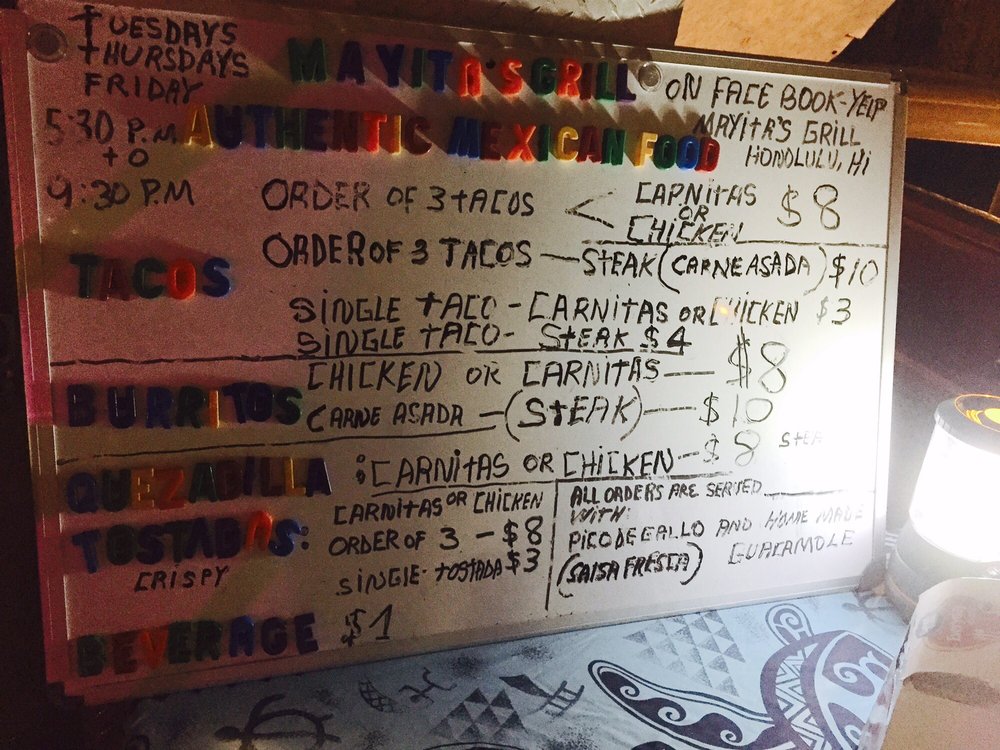 TUESDAYS
THURSDAYS
FRIDAY
5:30 P.M.
TO
9:30 P.M
MAYITA'S GRILL
AUTHENTIC MEXICAN FOOD
ON FACE BOOK-YELP
MAYITA'S GRILL
HONOLULU, HI
TACOS
ORDER OF 3 TACOS < CARNITAS OR CHICKEN $8
ORDER OF 3 TACOS — STEAK (CARNE ASADA) $10
SINGLE TACO - CARNITAS OR CHICKEN $3
SINGLE TACO - STEAK $4
BURRITOS
CHICKEN OR CARNITAS — $8
CARNE ASADA — (STEAK) — $10
QUEZADILLA : CARNITAS OR CHICKEN - $8
TOSTADAS:
CRISPY
CARNITAS OR CHICKEN
ORDER OF 3 - $8
SINGLE TOSTADA $3
ALL ORDERS ARE SERVED
WITH:
PICO DE GALLO AND HOME MADE
(SALSA FRESCA) GUACAMOLE
BEVERAGE $1